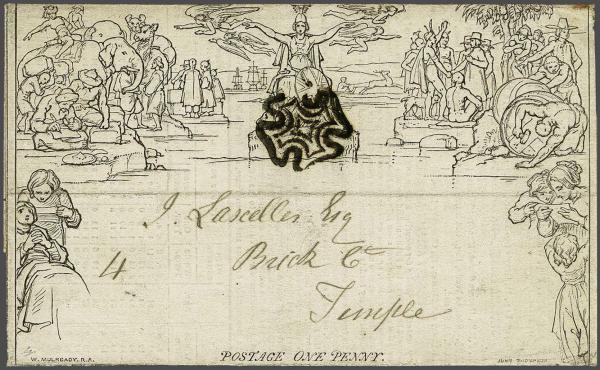 J. Lascelles Esq
Brick Ct
4
Temple
W. MULREADY, R.A.
POSTAGE ONE PENNY.
JOHN THOMPSON